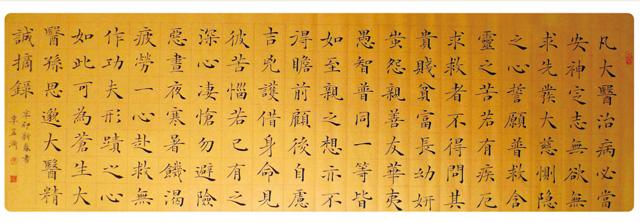 凡大醫治病必當
安神定志無欲無
求先發大慈惻隱
之心誓願普救含
靈之苦若有疾厄
求救者不得問其
貴賤貧富長幼妍
蚩怨親善友華夷
愚智普同一等皆
如至親之想亦不
得瞻前顧後自慮
吉兇護借身命見
彼苦惱若己有之
深心凄愴勿避險
惡晝夜寒暑饑渴
疲勞一心赴救無
作功夫形蹟之心
如此可為蒼生大
醫孫思邈大醫精
誠摘錄
辛卯新春書